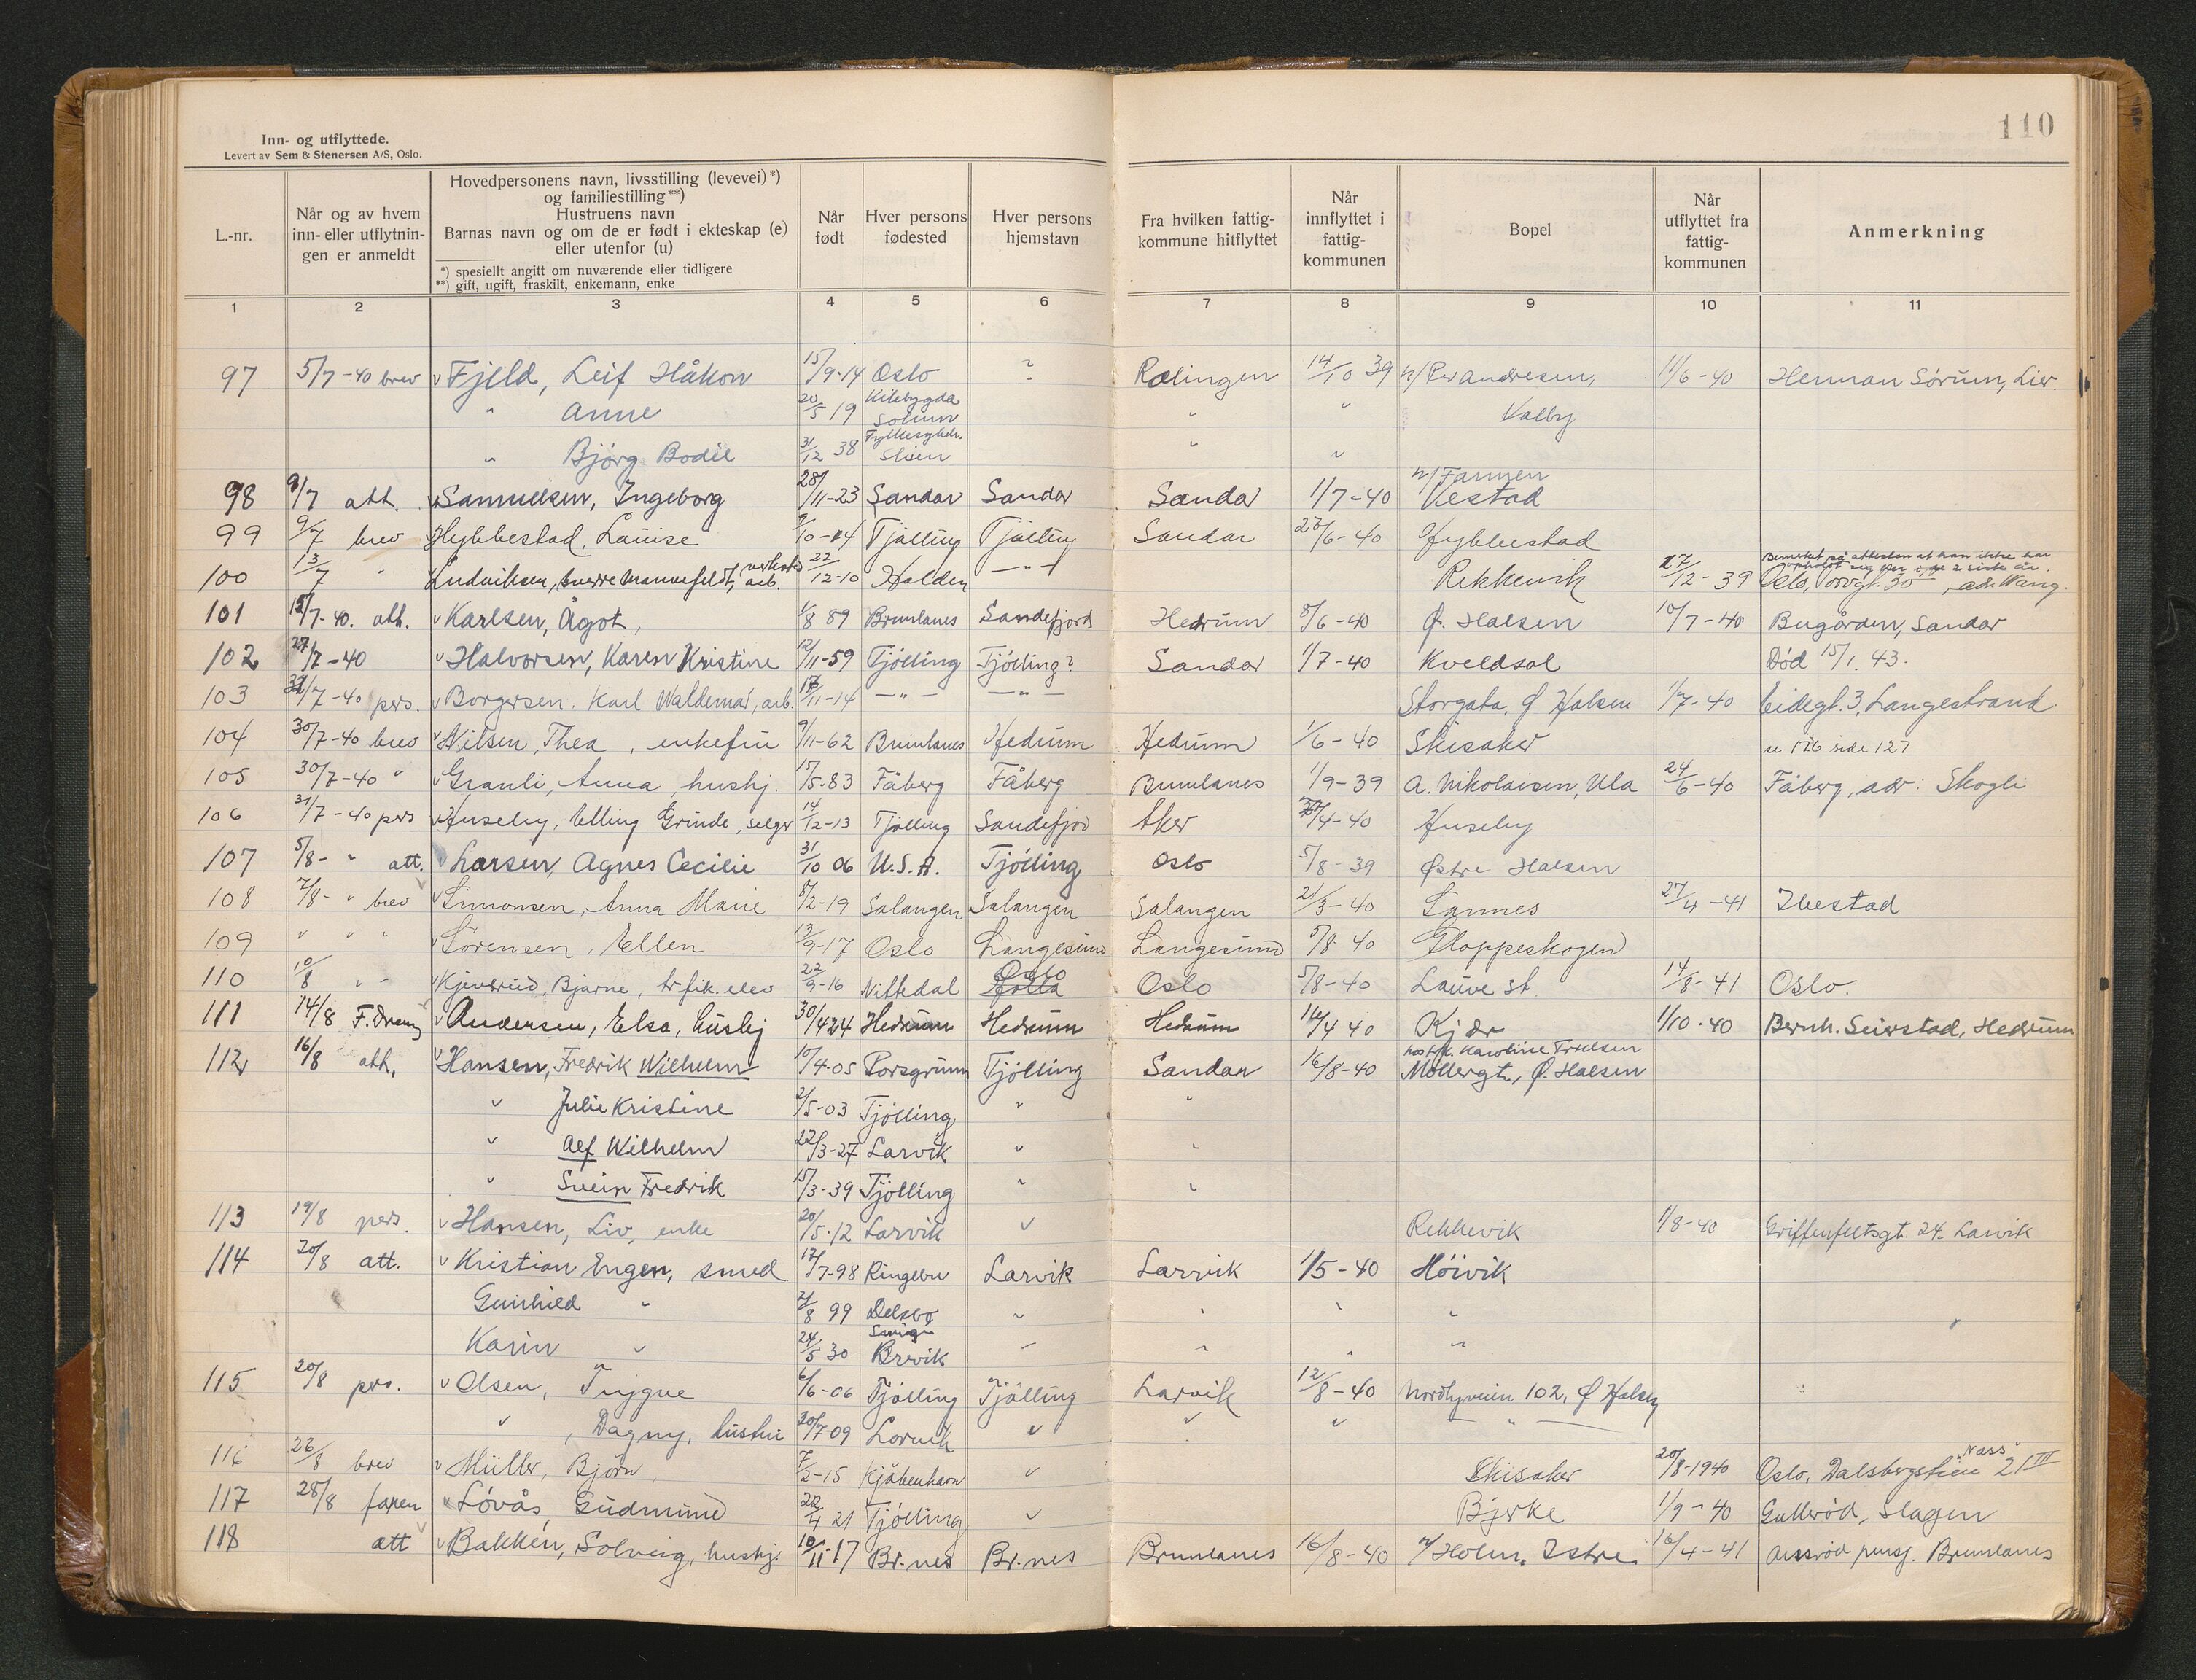 110
Inn- og utflyttede.
Levert av Sem & Stenersen A/S, Oslo.
L.-nr.
Når og av hvem inn- eller utflytnin-gen er anmeldt
Hovedpersonens navn, livsstilling (levevei) *) og familiestilling **)
Hustruens navn
Barnas navn og om de er født i ekteskap (e) eller utenfor (u)
*) spesiellt angitt om nuværende eller tidligere
**) gift, ugift, fraskilt, enkemann, enke
Når født
Hver persons fødested
Hver persons hjemstavn
Fra hvilken fattig-kommune hitflyttet
Når innflyttet i fattig-kommunen
Bopel
Når utflyttet fra fattig-kommunen
Anmerkning
1 2 3 4 5 6 7 8 9 10 11
97 5/7-40 brev Fjeld, Leif Håkon 15/9-14 Oslo ? Rælingen 14/10 39 Andresen, 11/6-40 Herman Sørum, Lier.
" Anne 20/5 19 Kilebygda Solum " " Valby
" Bjørg Bodil 31/12 38 Fylkessykeh. Skien " "
98 9/7 att. Samuelsen, Ingeborg 28/11-23 Sandar Sandar Sandar 1/7-40 v/Farmen Vestad
99 9/7 brev Hybbestad, Louise 9/10-14 Tjølling Tjølling Sandar 27/6-40 Hybbestad
100 13/7 " Ludviksen, Sverre Mannsfeldt, verksted arb. 22/12-10 Halden —"— Rekkevik 27/12-39 Bemerket på attesten at han ikke har opholdt sig her i de 2 siste år. Oslo, Torvgt. 30, adr. Wang.
101 15/7-40. att. Karlsen, Ågot, 1/8 89 Brunlanes Sandefjord Hedrum 8/6-40 Ø. Halsen 10/7-40 Bugården, Sandar
102 27/7-40 Halvorsen, Karen Kristine 12/11-59 Tjølling Tjølling? Sandar 1/7-40 Kveldsol Død 15/1. 43.
103 31/7-40 pers. Borgersen. Karl Waldemar, arb. 17/11-14 —"— —"— Storgata, Ø Halsen 1/7-40 Eidegt. 3, Langestrand.
104 30/7-40 brev Nilsen, Thea, enkefru 9/11-62 Brunlanes Hedrum Hedrum 1/6-40 Skisaker se 176 side 127
105 30/7-40 " Granli, Anna, hushj. 17/5-83 Fåberg Fåberg Brunlanes 1/9-39 A. Nikolaisen, Ula 24/6-40 Fåberg, adr: Skogli
106 31/7-40 pers Huseby, Elling Grinde, selger 14/12-13 Tjølling Sandefjord Aker /4-40 Huseby
107 5/8- " att. Larsen, Agnes Cecilie 31/10 06 U.S.A. Tjølling Oslo 5/8-39 Østre Halsen
108 7/8- " brev Simonsen, Anna Marie 8/2-19 Salangen Salangen Salangen 21/3-40 Sannes 27/4-41 Ibestad
109 " " " Sørensen, Ellen 13/9-17 Oslo Langesund Langesund 5/8 40 Gloppeskogen
110 10/8 " " Kjeverud, Bjarne, trfik. elev 22/9-16 Nittedal Oslo Oslo 5/8-40 Lauve st. 14/8-41 Oslo.
111 14/8 F. Andersen, Elsa, hushj 30/4 24 Hedrum Hedrum Hedrum 14/4 40 Kjær 1/10-40 Bernh. Seierstad, Hedrum
112 16/8 att. Hansen, Fredrik Wilhelm 10/4-05 Porsgrunn Tjølling Sandar 16/8-40 hos fk. Karoline Møllergt, Ø. Halsen
" Julie Kristine 2/5-03 Tjølling " "
" Alf Wilhelm 22/3-27 Larvik " "
" Svein Fredrik 15/3-39 Tjølling " "
113 19/8 pers. Hansen, Liv, enke 20/5-12 Larvik " Rekkevik 1/8-40 Griffenfeltsgt. 24. Larvik
114 20/8 att. Kristian Engen, smed 17/7-98 Ringebu Larvik Larvik 1/5-40 Høivik
Gunhild " 2/8 99 Delsbo Sverige " " " "
Karin " 24/5 30 Brevik " " " "
115 20/8 pers. Olsen, Trygve 6/6-06 Tjølling Tjølling Larvik 12/8-40 Nordbyveien 102, Ø Halsen
" , Dagny, hustru 20/7-09 Larvik " " " "
116 26/8 brev Müller, Bjørn, 7/2-15 Kjøbenhavn " Skisaker 20/8-1940 Oslo, Dalsbergstien 21 III
117 28/8 Løvås, Gudmund 22/4 21 Tjølling " Bjerke 1/9-40 Gullerød, Slagen
118 att Bakken, Solveig, hushj. 10/11-17 Br.nes Br.nes Brunlanes 16/8-40 v/Holm, Istre 16/4-41 pensj. Brunlanes